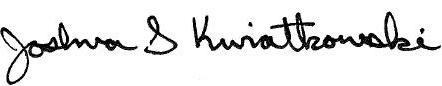 Joshua S Kwiatkowski